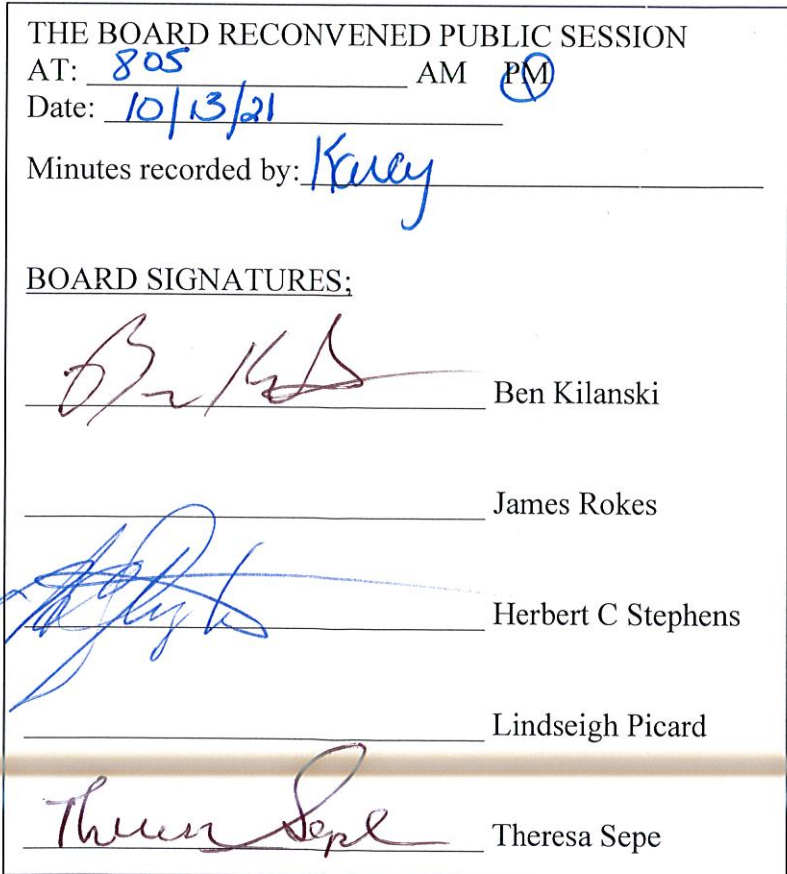 THE BOARD RECONVENED PUBLIC SESSION
AT: 805 AM PM
Date: 10/13/21
Minutes recorded by:
BOARD SIGNATURES;
Ben Kilanski
James Rokes
Herbert C Stephens
Lindseigh Picard
Theresa Sepe Theresa Sepe